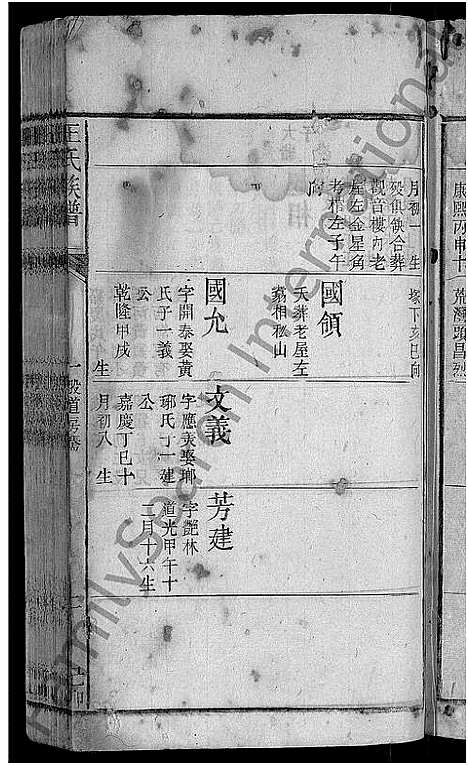 康熙丙申十
荒灣蹟昌烈
月初一生
歿俱缺合葬
觀音樓內老
屋左金星角
老相左子午
向
塚下亥巳向
國領
夭葬老屋左
國允
字開泰娶黃
氏子一義
公
乾隆甲戌
生
文義
琊氏丁一建
公
嘉慶丁巳十
月初八生
芳建
字艷林
道光甲午十
二月十六生
王氏族譜
FamilySearch International